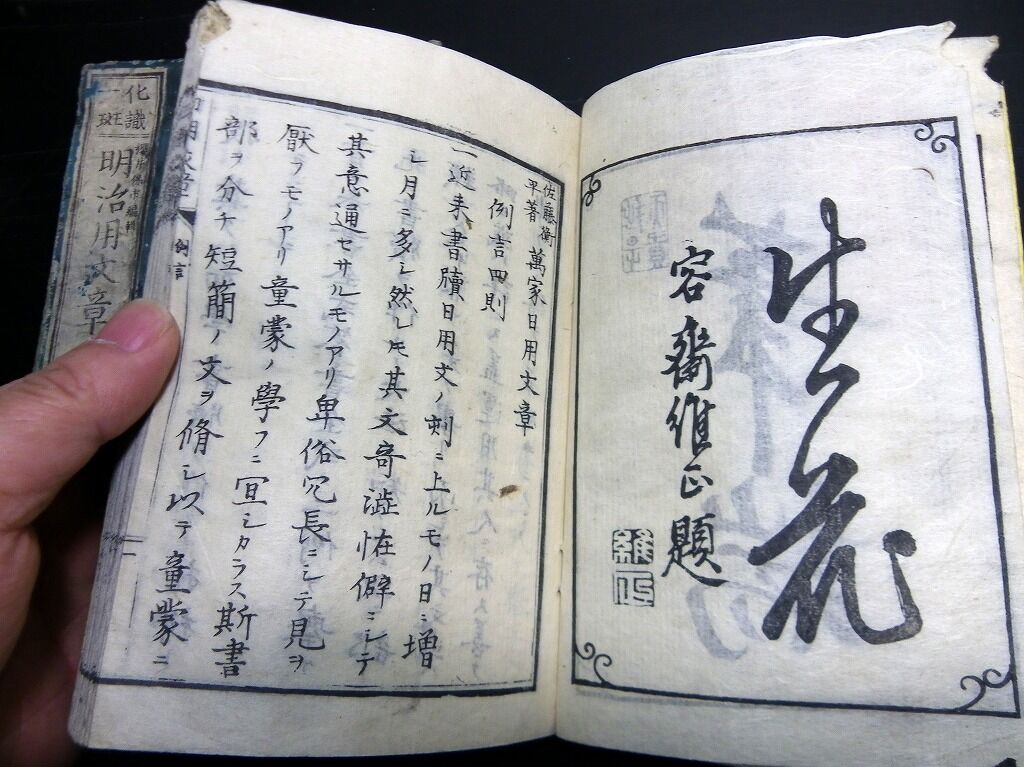 生花
容齋維正題
維正
佐藤衡
平著
萬家日用文章
例言四則
一近来書牘日用文ノ刺ニ上ルモノ日ニ増
シ月ニ多シ然レ𪜈其文奇澁怪僻ニシテ
其意通セサルモノアリ卑俗冗長ニシテ見ヲ
厭ヲモノアリ童蒙ノ學フニ宜シカラス斯書
部ヲ分チ短簡ノ文ヲ脩シ以テ童蒙ニ
例言
化識
一班
明治用文章